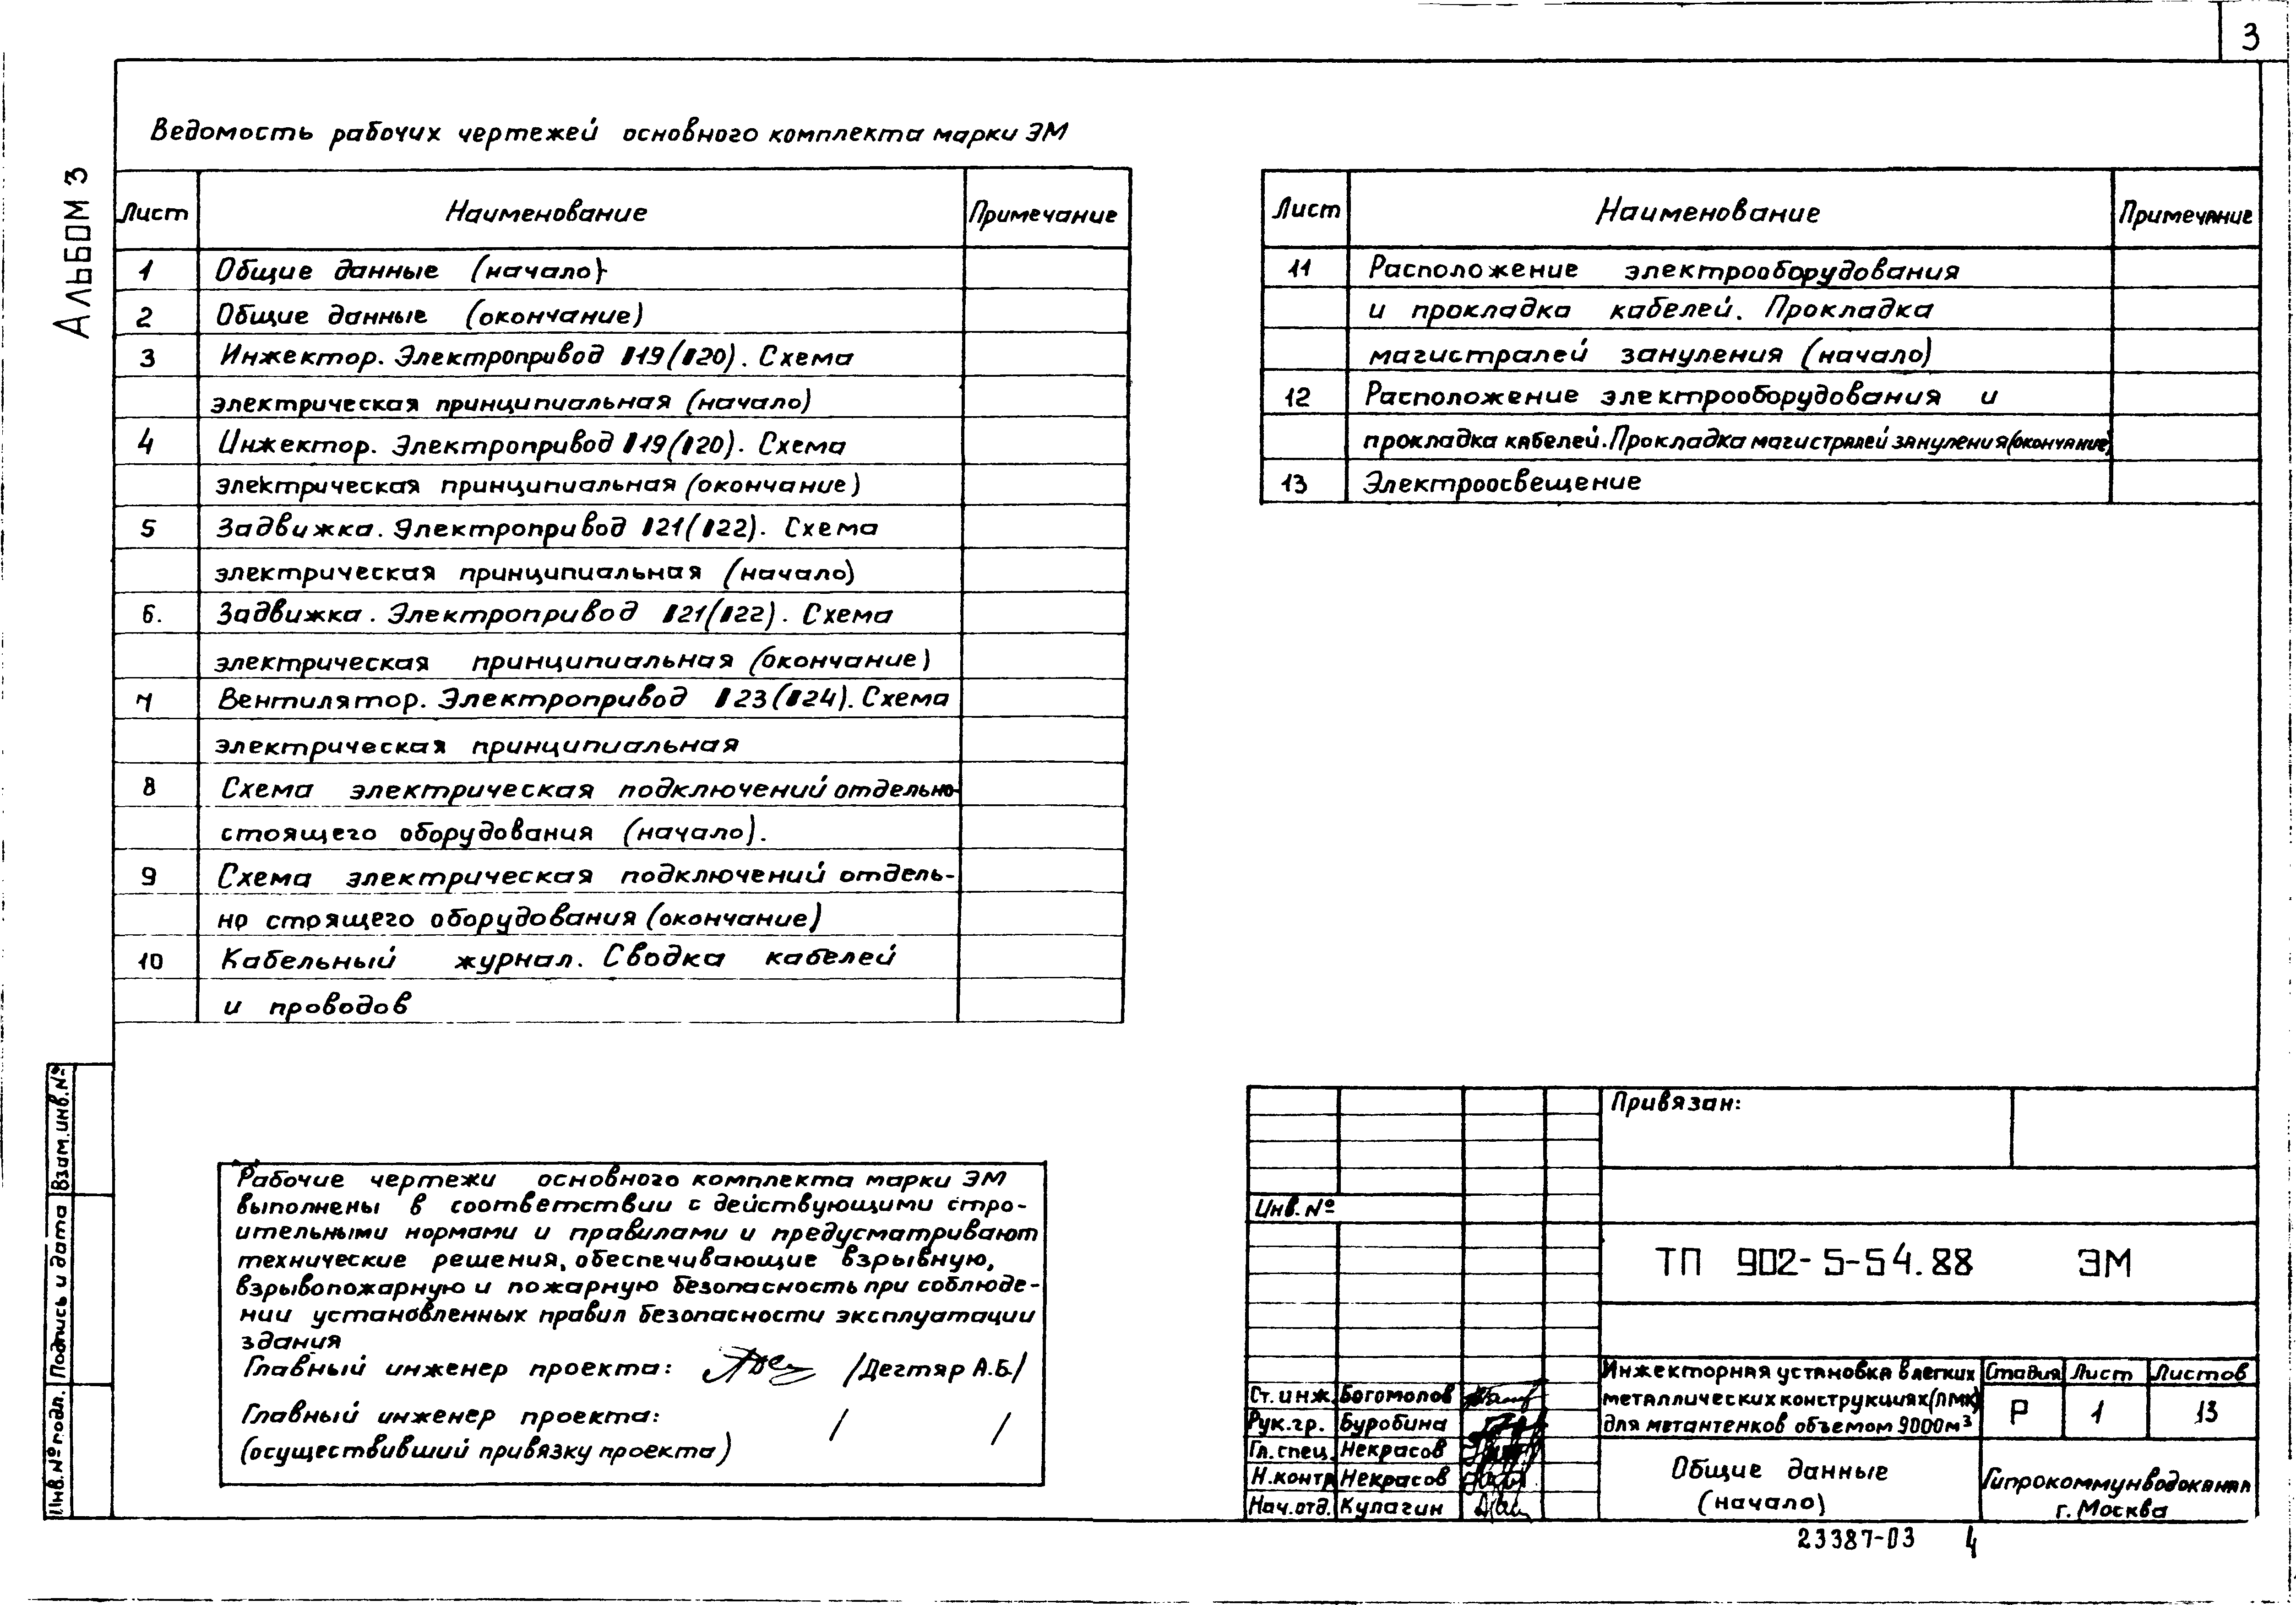 3
АЛЬБОМ 3
Ведомость рабочих чертежей основного комплекта марки ЭМ
Лист Наименование Примечание
1 Общие данные (начало)
2 Общие данные (окончание)
3 Инжектор. Электропривод 119(120). Схема
электрическая принципиальная (начало)
4 Инжектор. Электропривод 119(120). Схема
электрическая принципиальная (окончание)
5 Задвижка. Электропривод 121(122). Схема
электрическая принципиальная (начало)
6. Задвижка. Электропривод 121(122). Схема
электрическая принципиальная (окончание)
7 Вентилятор. Электропривод 123(124). Схема
электрическая принципиальная
8 Схема электрическая подключений отдельно-
стоящего оборудования (начало).
9 Схема электрическая подключений отдель-
но стоящего оборудования (окончание)
10 Кабельный журнал. Сводка кабелей
и проводов
Лист Наименование Примечание
11 Расположение электрооборудования
и прокладка кабелей. Прокладка
магистралей зануления (начало)
12 Расположение электрооборудования и
прокладка кабелей. Прокладка магистралей зануления (окончание)
13 Электроосвещение
Рабочие чертежи основного комплекта марки ЭМ
выполнены в соответствии с действующими стро-
ительными нормами и правилами и предусматривают
технические решения, обеспечивающие взрывную,
взрывопожарную и пожарную безопасность при соблюде-
нии установленных правил безопасности эксплуатации
здания
Главный инженер проекта: /Дегтяр А.Б./
Главный инженер проекта: / /
(осуществивший привязку проекта)
Взам. инв. №
Подпись и дата
Инв. № подл.
Привязан:
Инв. №
ТП 902-5-54.88 ЭМ
Инжекторная установка в легких
металлических конструкциях (ЛМК)
для метантенков объемом 9000м³
Стадия Лист Листов
Р 1 13
Ст. инж. Богомолов
Рук. гр. Буробина
Гл. спец. Некрасов
Н. контр Некрасов
Нач. отд. Кулагин
Общие данные
(начало)
Гипрокоммунводоканал
г. Москва
23387-03 4